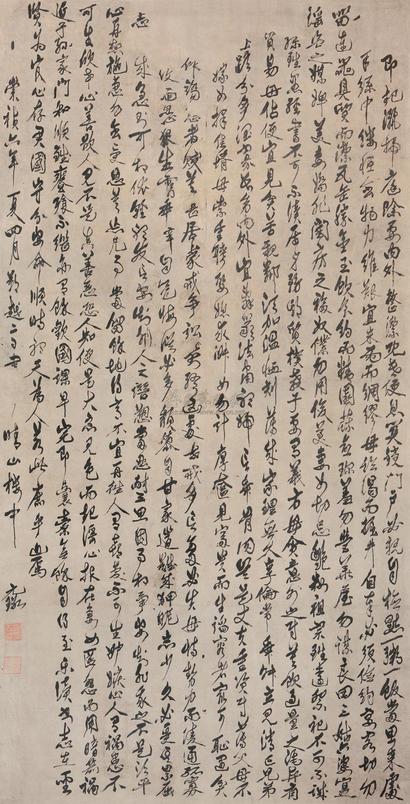 即起灑掃庭除要內外整潔既昏便息關鎖門戶必親自檢點一粥一飯當思來處
絲半縷恒念物力維艱宜未雨而綢繆毋臨渴而掘井自奉必須儉約宴客切勿
留連器具質而潔瓦缶勝金玉飲食約而精園蔬愈珍饈勿營華屋勿謀良田三姑六婆實
淫盜之媒婢美妾嬌非閨房之福奴僕勿用俊美妻妾切忌艷粧祖宗雖遠祭祀不可不誠
子孫雖愚經書不可不讀居身務期質樸教子要有義方毋貪意外之財莫飲過量之酒與肩
貿易毋佔便宜見貧苦親鄰須加溫恤刻薄成家理無久享倫常乖舛立見消亡兄弟
分多潤寡長幼內外宜法肅辭嚴聽婦言乖骨肉豈是丈夫重資財薄父母不
嫁女擇佳婿毋索重聘娶媳求淑女勿計厚奩見富貴而生諂容者最可恥遇貧
作驕態者賤莫甚居家戒爭訟訟則終凶處世戒多言言多必失毋恃勢力而凌逼孤寡
而恣殺生禽乖僻自是悔誤必多頹惰自甘家道難成狎昵惡少久必受其累屈
志老成急則可相依輕聽發言安知非人之譖愬當忍耐三思因事相爭安知非我之不是須平
心再想施惠勿念受恩莫忘凡事當留餘地得意不宜再往人有喜慶不可生妒嫉心人有禍患不
可生欣幸心善欲人見不是真善惡恐人知便是大惡見色而起淫心報在妻女匿怨而用暗箭禍
延子孫家門和順雖饔飧不繼亦有餘歡國課早完即囊橐無餘自得至樂讀書志在聖
賢為官心存君國守分安命順時聽天為人若此庶乎近焉
崇禎六年夏四月 晴山樓中